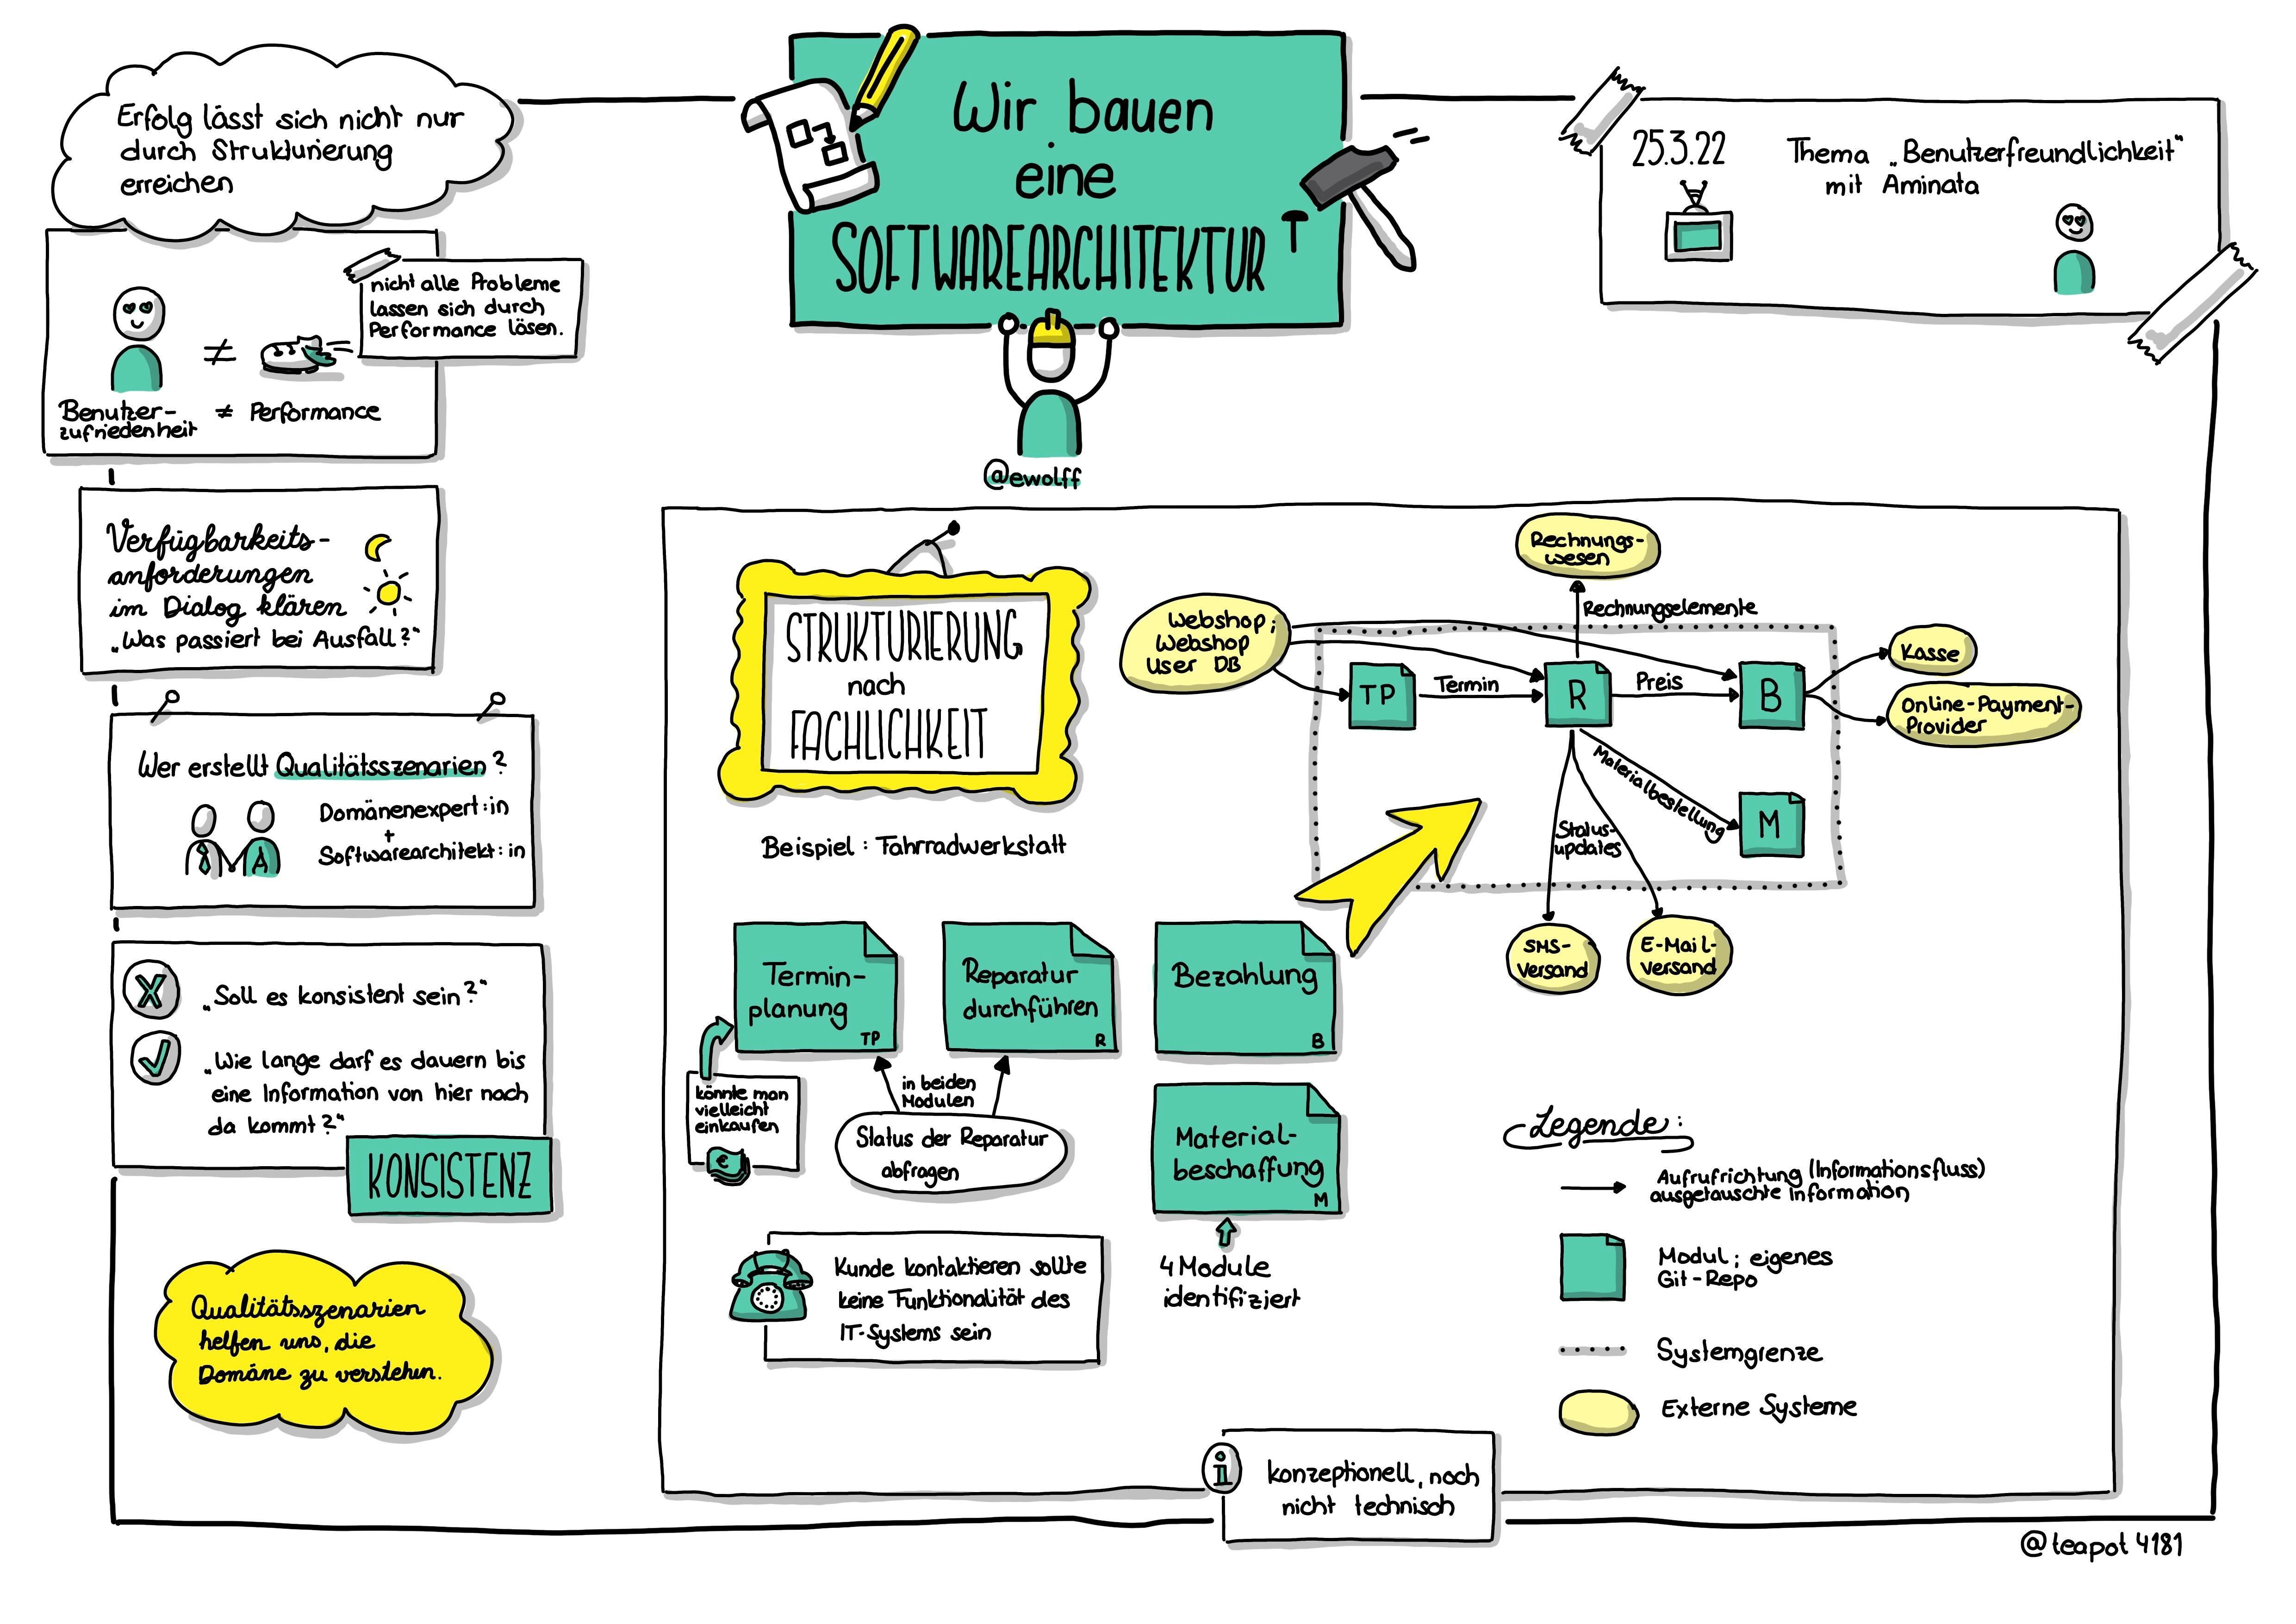 Wir bauen
eine
SOFTWAREARCHITEKTUR
@ewolff
25.3.22
Thema „Benutzerfreundlichkeit“
mit Aminata
Erfolg lässt sich nicht nur
durch Strukturierung
erreichen
nicht alle Probleme
lassen sich durch
Performance lösen.
≠
Benutzer-
zufriedenheit
≠ Performance
Verfügbarkeits-
anforderungen
im Dialog klären
„Was passiert bei Ausfall?“
Wer erstellt Qualitätsszenarien?
A
Domänenexpert:in
+
Softwarearchitekt:in
X
„Soll es konsistent sein?“
„Wie lange darf es dauern bis
eine Information von hier nach
da kommt?“
KONSISTENZ
Qualitätsszenarien
helfen uns, die
Domäne zu verstehen.
STRUKTURIERUNG
nach
FACHLICHKEIT
Beispiel: Fahrradwerkstatt
Termin-
planung
TP
Reparatur
durchführen
R
Bezahlung
B
könnte man
vielleicht
einkaufen
€
in beiden
Modulen
Status der Reparatur
abfragen
Material-
beschaffung
M
4 Module
identifiziert
Kunde kontaktieren sollte
keine Funktionalität des
IT-Systems sein
Rechnungs-
wesen
Rechnungselemente
Webshop;
Webshop
User DB
TP
Termin
R
Preis
B
Kasse
Online-Payment-
Provider
Materialbestellung
M
Status-
updates
SMS-
Versand
E-Mail-
versand
Legende:
Aufrufrichtung (Informationsfluss)
ausgetauschte Information
Modul; eigenes
Git-Repo
Systemgrenze
Externe Systeme
i
konzeptionell, noch
nicht technisch
@teapot4181